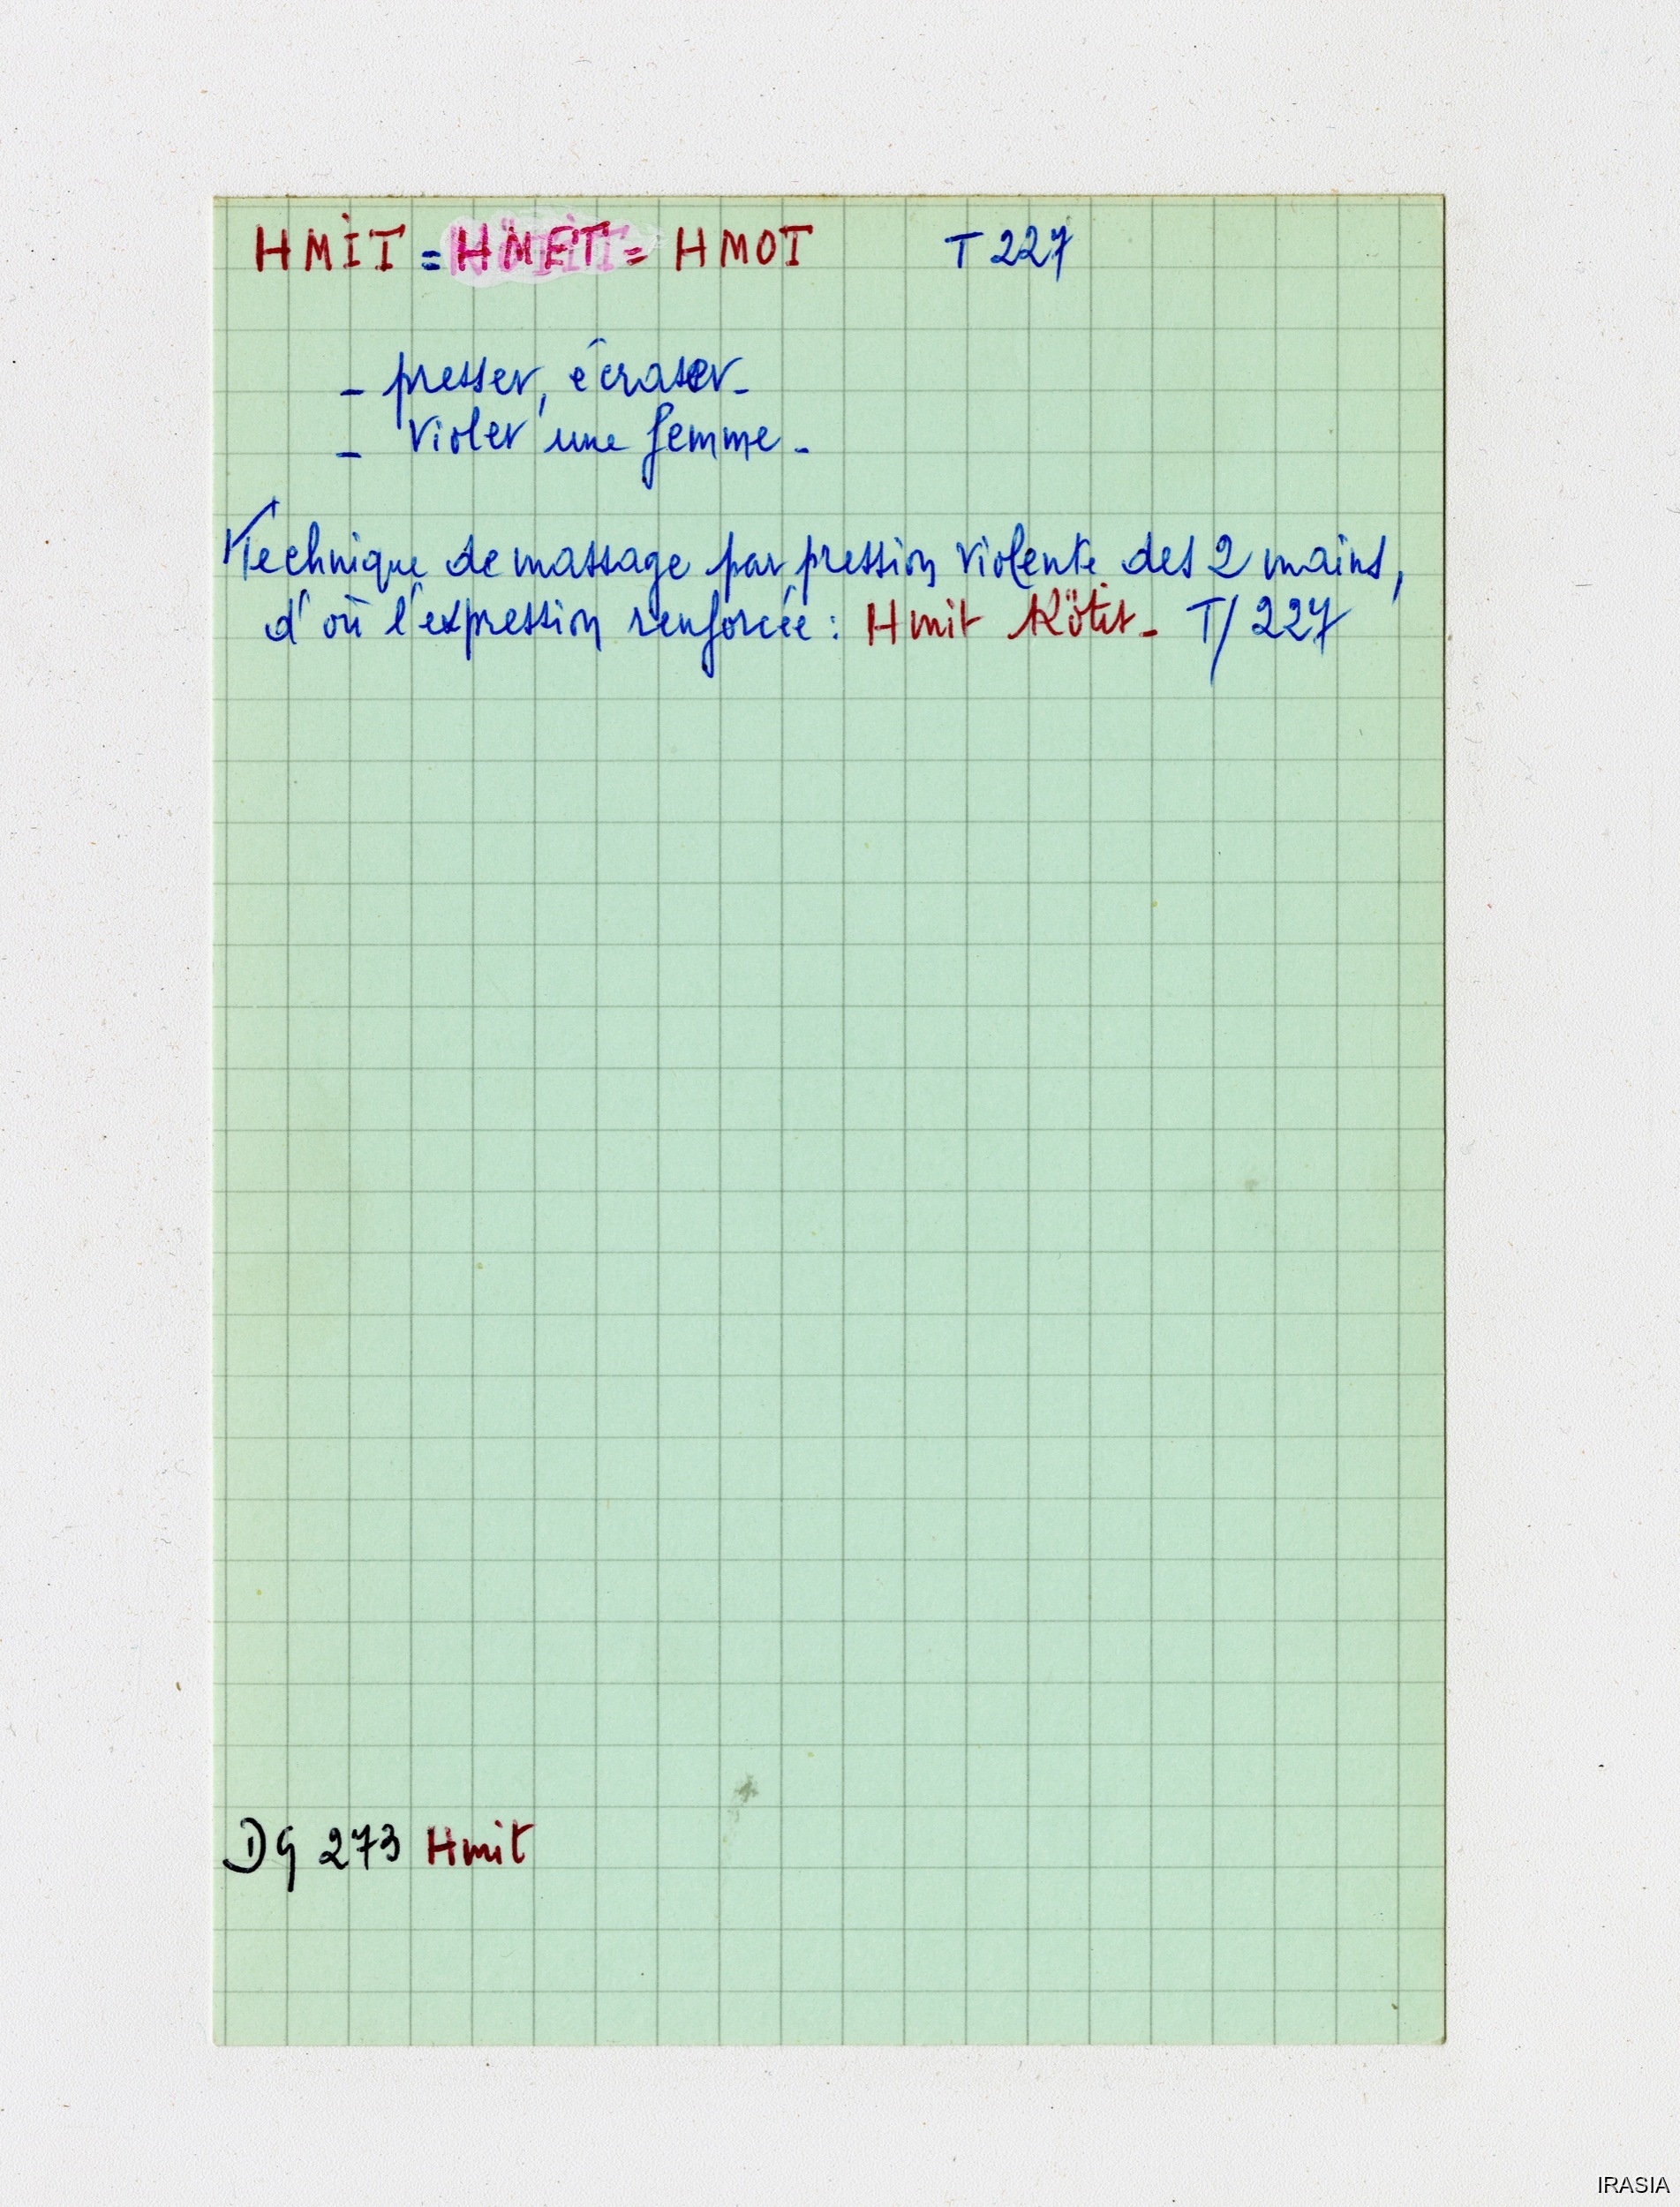 HMIT = HMET = HMOT T 227
- presser, écraser -
- violer une femme -
Technique de massage par pression violente des 2 mains,
d'où l'expression renforcée : Hmit Kötit - T/227
DG 273 Hmit
IRASIA